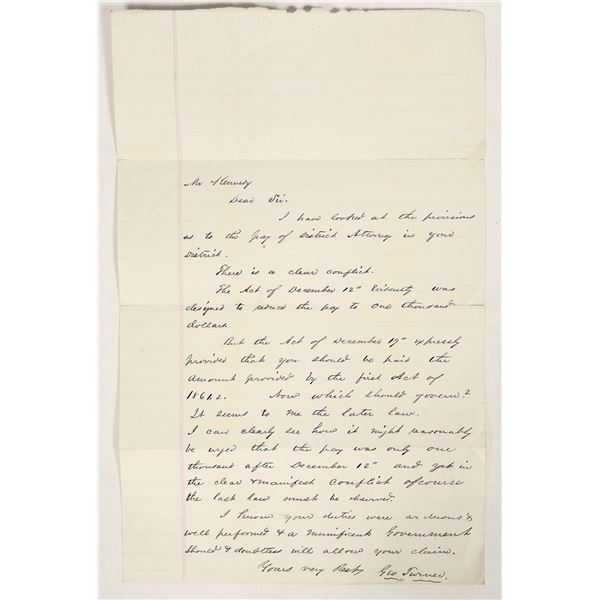 Mr Kennedy
Dear Sir.
I have looked at the provisions
as to the pay of District Attorney in your
District.
There is a clear conflict.
The Act of December 12" was
designed to reduce the pay to one thousand
dollars.
But the Act of December 19" expressly
provided that you should be paid the
amount provided by the first Act of
1861.2. Now which should govern?
It seems to me the later law.
I can clearly see how it might reasonably
be urged that the pay was only one
thousand after December 12" and yet in
the clear & manifest conflict of course
the last law must be observed.
I know your duties were arduous &
well performed & a munificent Government
should & doubtless will allow your claim.
Yours very Resty Geo Turner.